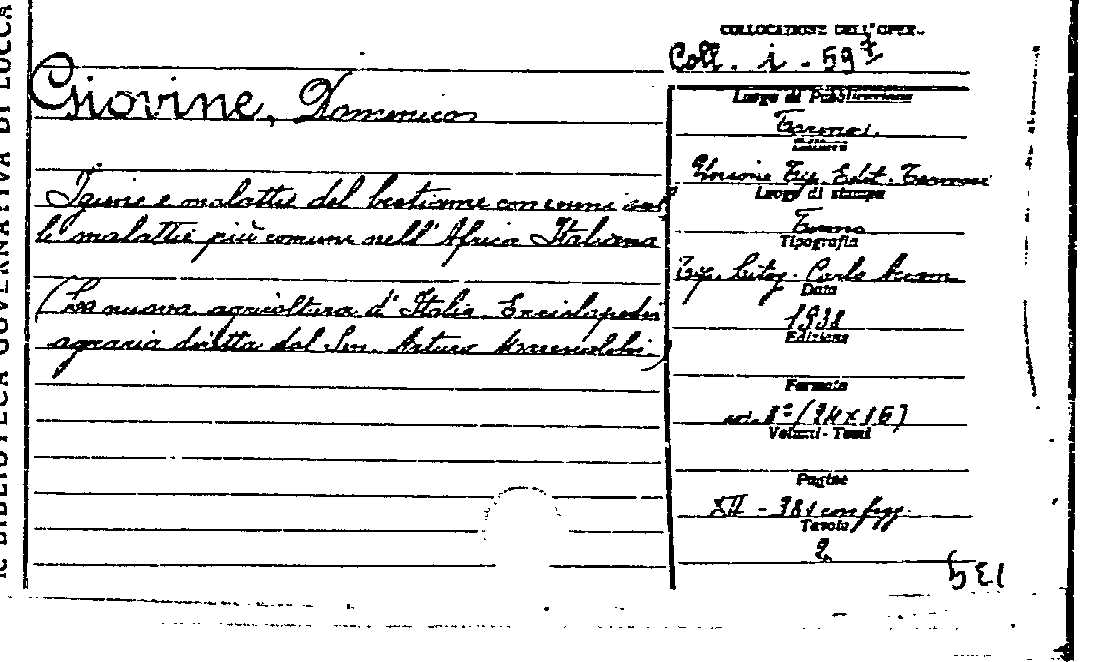 R. BIBLIOTECA GOVERNATIVA DI LUCCA
Giovine, Domenico
Igiene e malattie del bestiame con cenni sul
le malattie più comuni nell'Africa Italiana
(La nuova agricoltura d'Italia. Enciclopedia
agraria diretta dal Sen. Arturo Marescalchi.)
COLLOCAZIONE DELL'OPERA
Coll. i - 59
Luogo di Pubblicazione
Torino.
Editore
Unione Tip. Edit. Torinese
Luogo di stampa
Torino
Tipografia
Tip. Litog. Carlo
Data
1938
Edizione
Formato
in 8° (24x16)
Volumi - Tomi
Pagine
XII - 381 con figg.
Tavole
2